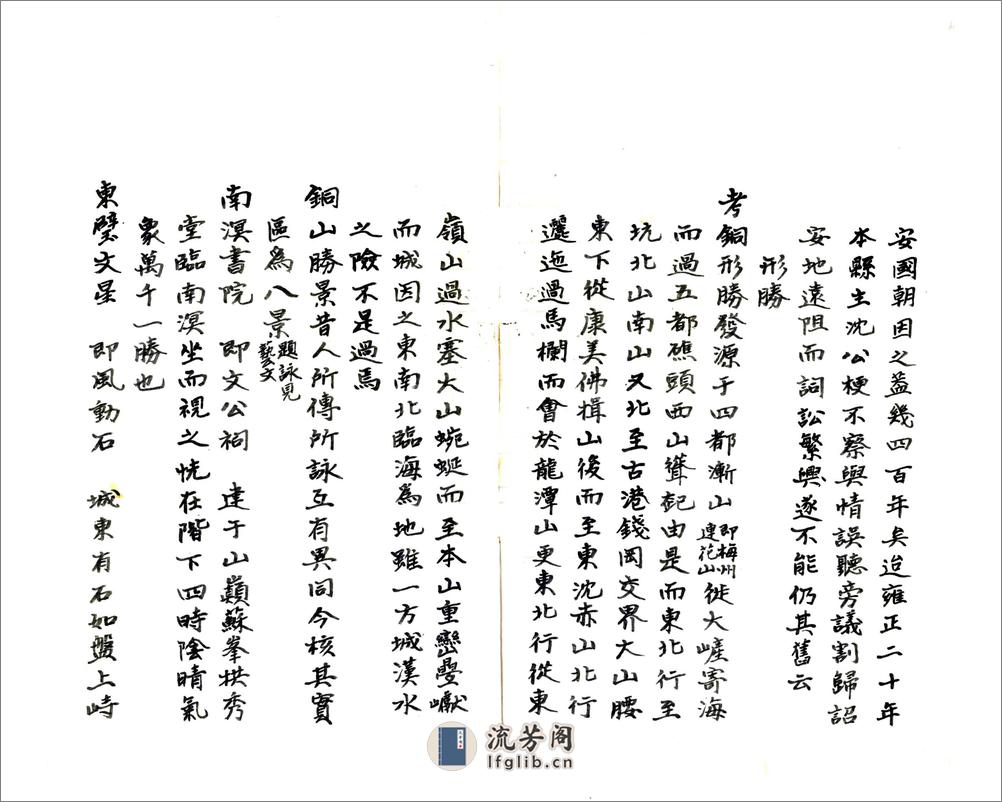 安國朝因之蓋幾四百年矣迨雍正二十年
本縣主沈公梗不察輿情誤聽旁議割歸詔
安地遠阻而詞訟繁興遂不能仍其舊云
形勝
考銅形勝發源于四都漸山即梅州連花山從大嵯寄海
而過五都礁頭西山聳起由是而東北行至
坑北山南山又北至古港錢岡交界大山腰
東下從康美佛揖山後而至東沈赤山北行
邐迤過馬欄而會於龍潭山更東北行從東
嶺山過水寨大山蜿蜒而至本山重巒疊巘
而城因之東南北臨海為地雖一方城漢水
之險不是過焉
銅山勝景昔人所傳所詠互有異同今核其實
區為八景題詠見藝文
南溟書院 即文公祠 建于山巔蘇峯拱秀
堂臨南溟坐而視之恍在階下四時陰晴氣
象萬千一勝也
東壁文星 即風動石 城東有石如盤上峙
流芳阁
lfglib.cn